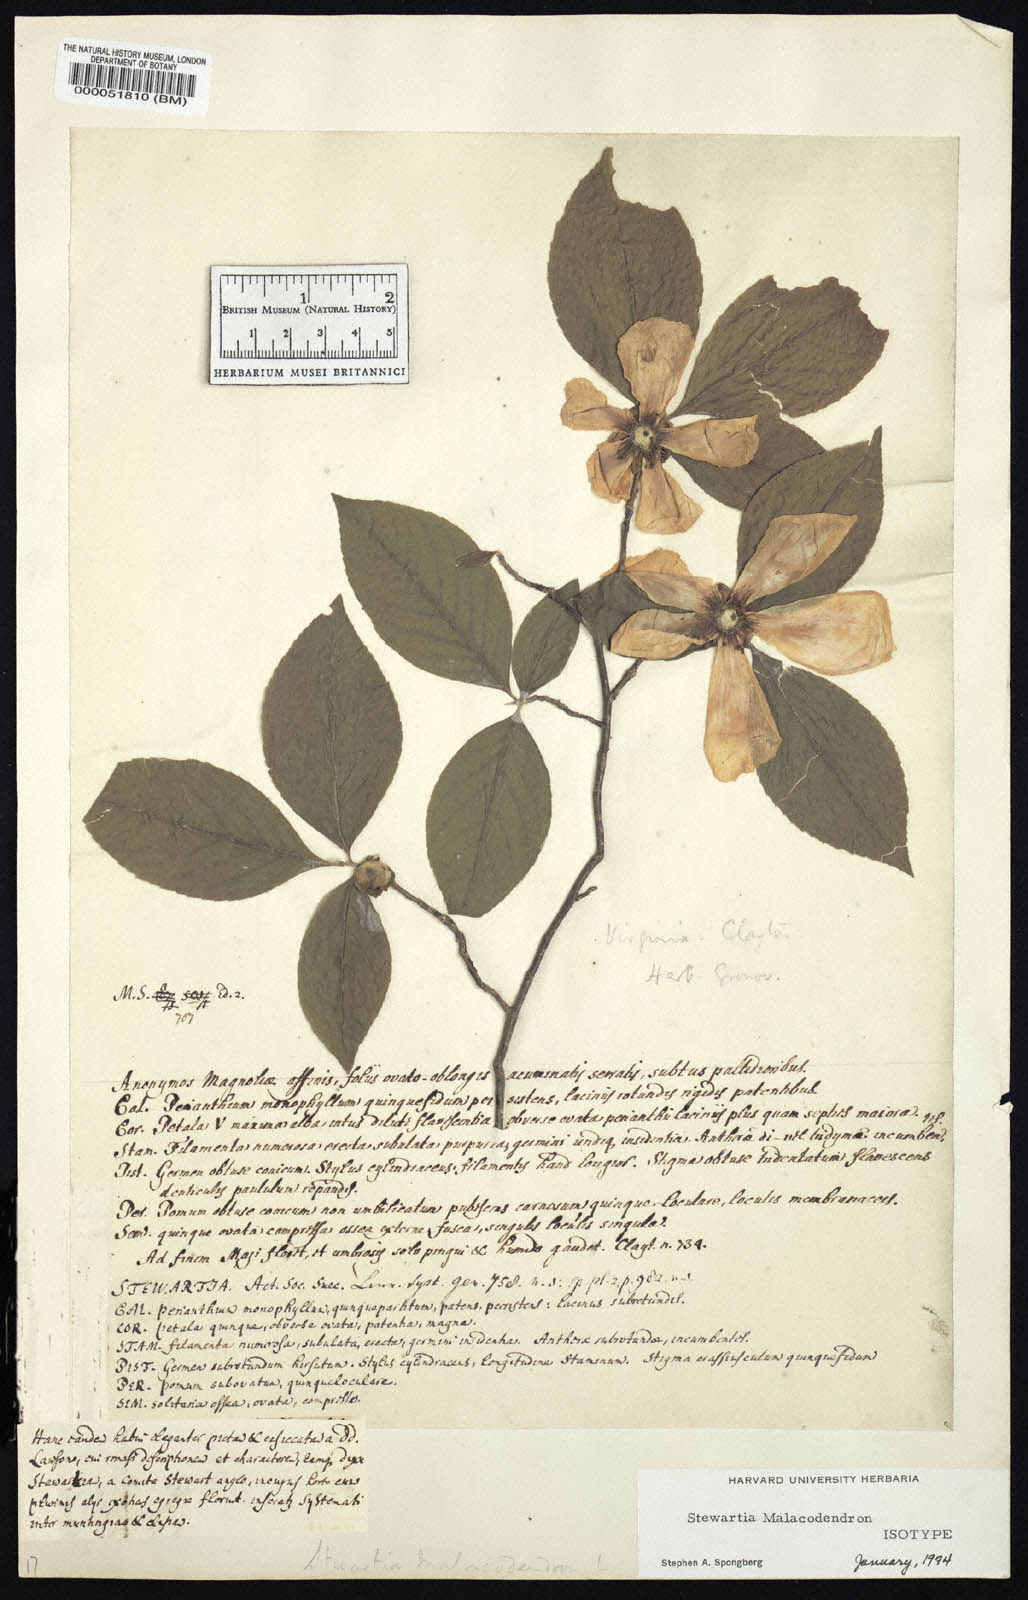 THE NATURAL HISTORY MUSEUM, LONDON
DEPARTMENT OF BOTANY
000051810 (BM)
1 2
BRITISH MUSEUM (NATURAL HISTORY)
1 2 3 4 5
HERBARIUM MUSEI BRITANNICI
Virginia. Clayton
Herb. Gronov.
M.S. Ed. 2.
707
Anonymos Magnoliæ affinis, foliis ovato-oblongis acuminatis serratis, subtus pallidioribus.
Cal. Perianthium monophyllum quinquefidum persistens, laciniis rotundis rigidis patentibus.
Cor. Petala V maxima alba intus dilute flavescentia obverse ovata perianthii laciniis plus quam septies maiora.
Stam. Filamenta numerosa erecta subulata purpurea, germini undiq, insidentia. Antheræ didymæ incumbent.
Pist. Germen obtuse conicum. Stylus cylindraceus, filamentis haud longior. Stigma obtuse indentatum flavescens
denticulis paululum repandis.
Per. Pomum obtuse conicum non umbilicatum pubescens carnosum quinque-loculare, loculis membranaceis.
Sem. quinque ovata compressa ossea externe fusca, singulis loculis singula.
Ad finem Maji floret, et umbrosis solo pingui & humido gaudet. Clayt. n. 734.
STEWARTIA. Act. Soc. Suec. Linn. Syst. gen. 758. n. s: sp. pl. 2. p. 982.
CAL. perianthiu monophyllu, quinquepartitum, patens, persistens: laciniis subrotundis.
COR. petala quinque, obverse ovata, patentia, magna.
STAM. filamenta numerosa, subulata, erecta, germini insidentia. Antheræ subrotundæ, incumbentes.
PIST. Germen subrotundum hirsutum. Stylus cylindraceus, longitudine Staminum. Stigma crassiusculum quinquefidum
PER. pomum subovatum, quinqueloculare.
SEM. solitaria ossea, ovata, compressa.
Hanc eandem habui eleganter picta & exsiccata a DD.
Lawsono, cui misi descriptionem et characterem,
Stewartia, a Comite Stewart anglo, in cujus horto
floruit. inseratz Systemati
inter
HARVARD UNIVERSITY HERBARIA
Stewartia Malacodendron
ISOTYPE
Stephen A. Spongberg January, 1994
Stewartia malacodendron L
17